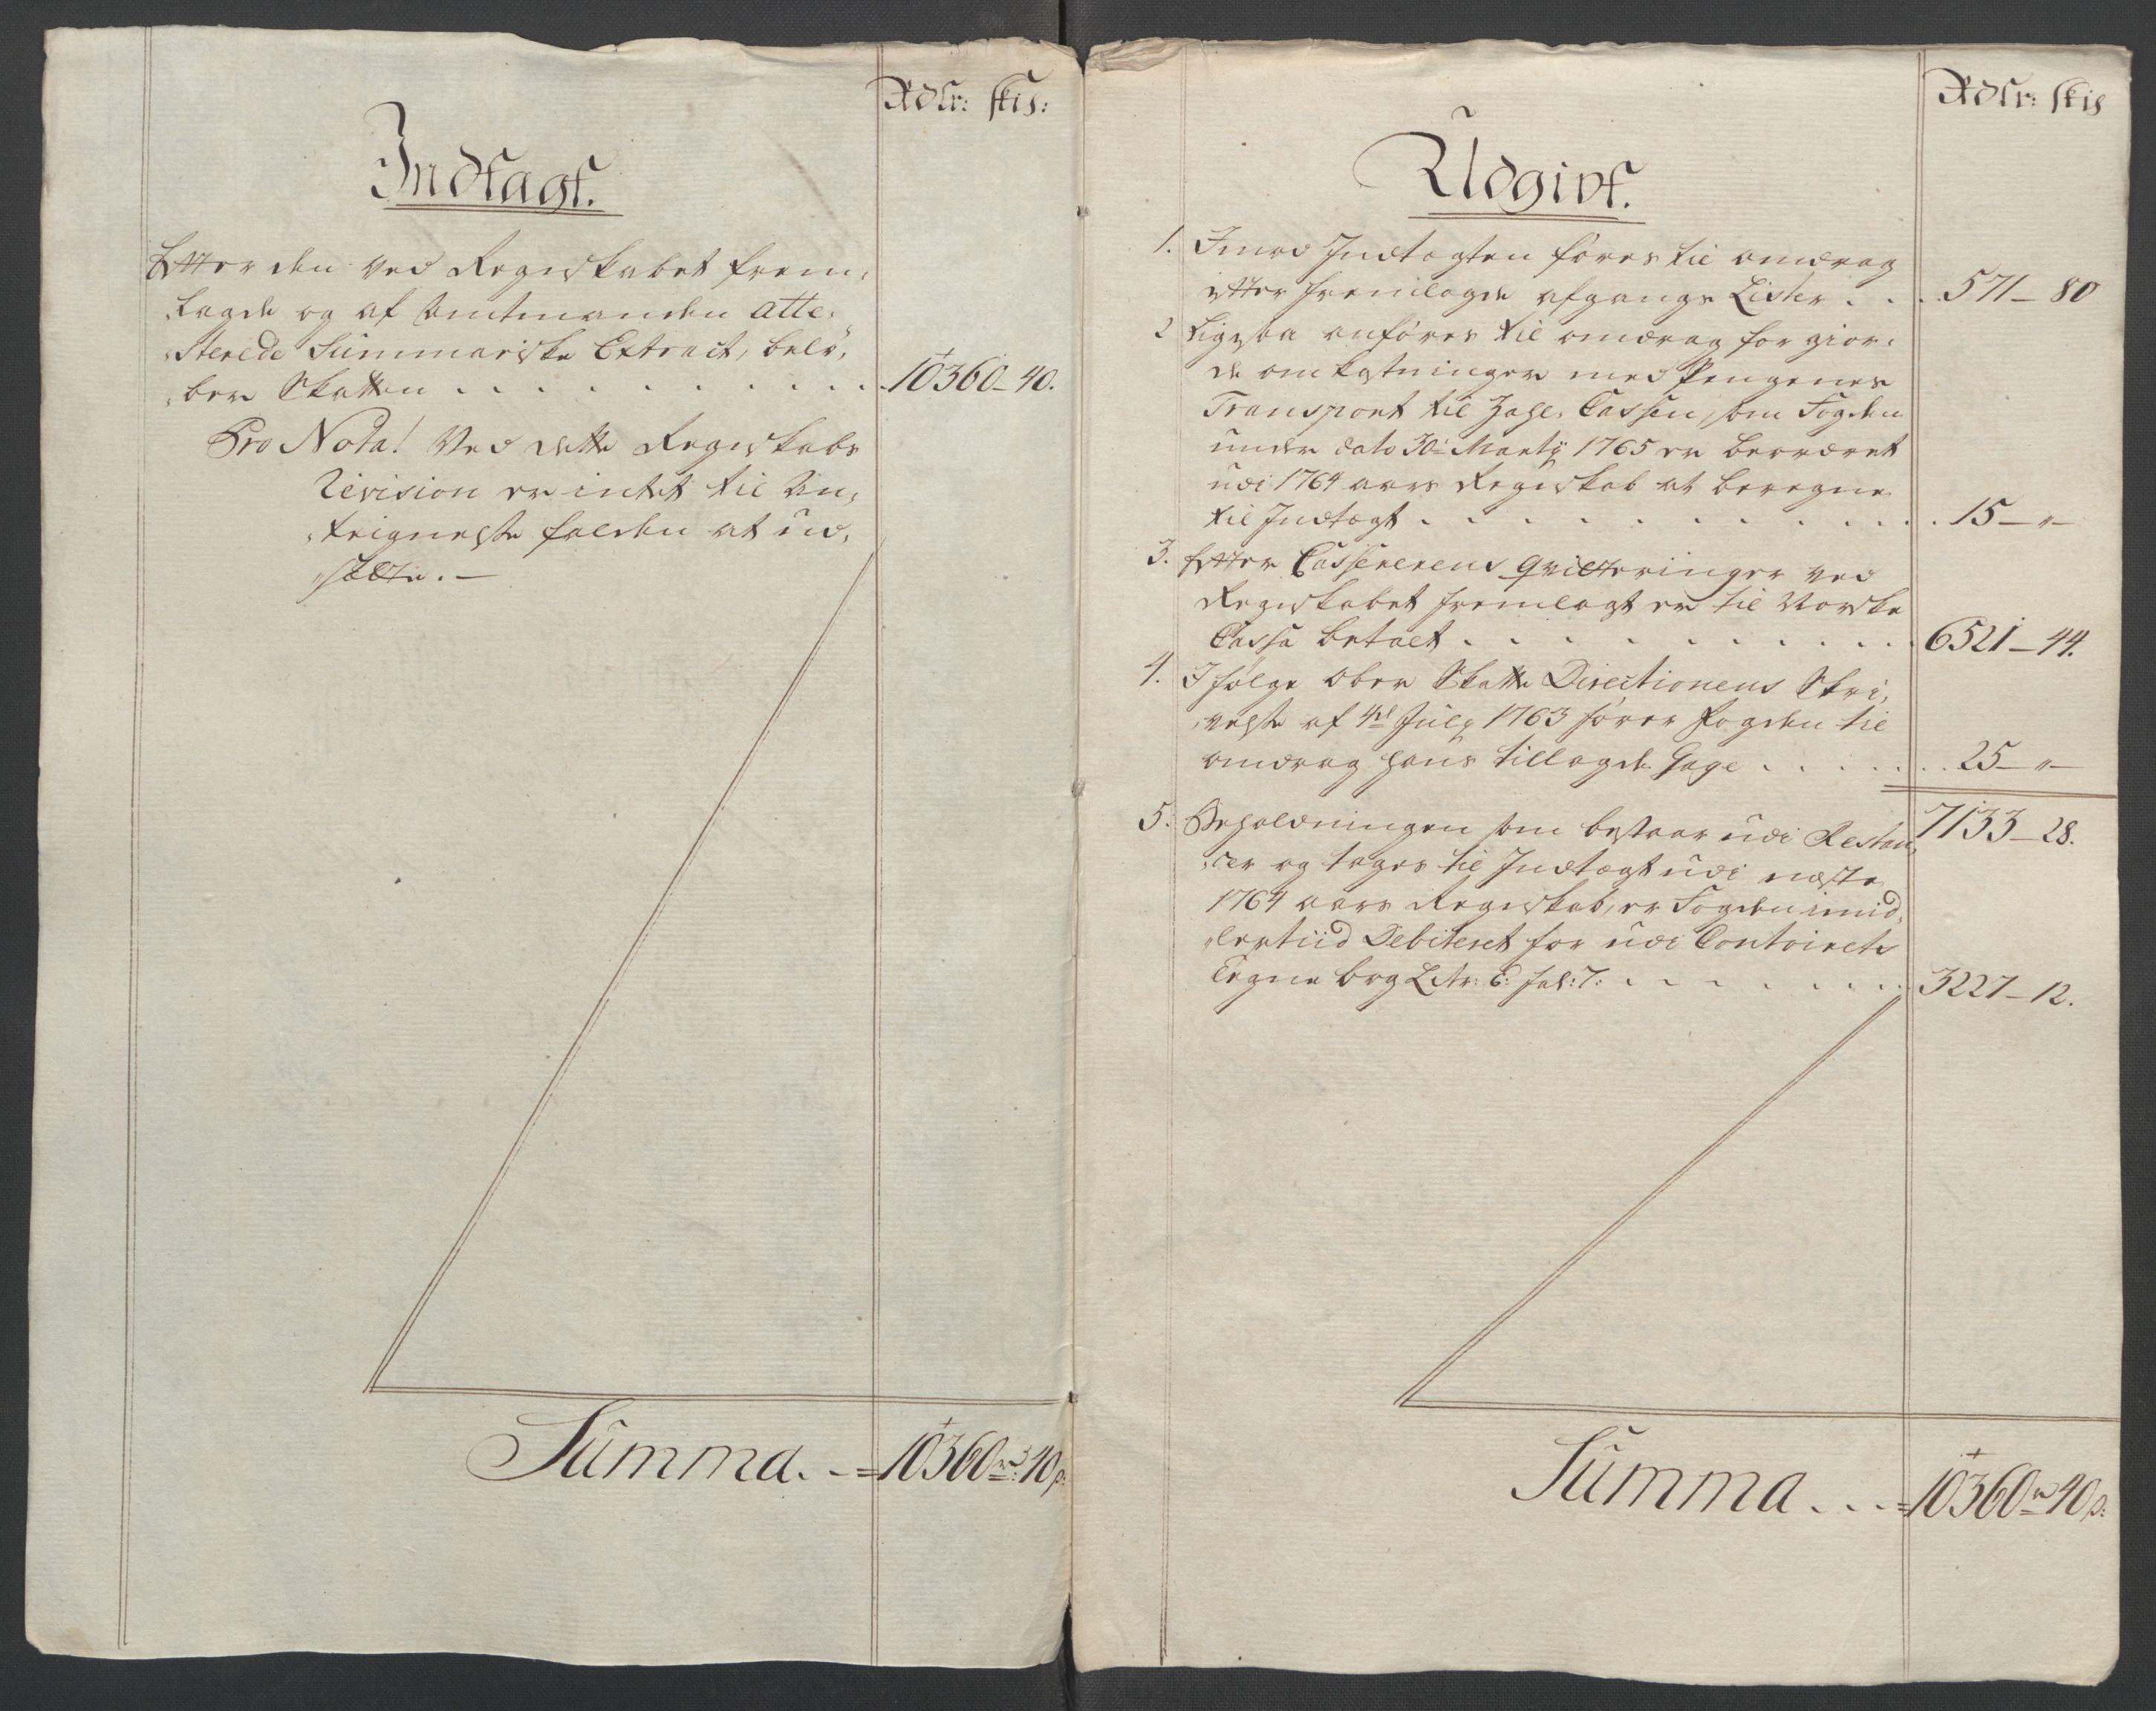 Rdlr: skis:
Indtagt.
Efter den ved Regnskabet frem,
lagde og af Amtmanden atte,
sterede Summariske Extract, belø,
ber Skatten . . . . . . . . . . . 10360 - 40.
Pro Nota! Ved dette Regnskabs
Revision er intet til An,
teignelse falden at ud,
sætte. -
Summa. - = 10360 rd 40 s.
Rdlr: skis
Udgivt.
1. Imod Indtægten føres til omdrag
efter fremlagde afgangs Lister . . . 571 - 80
2 Ligesaa anføres til omdrag for gior,
de omkostninger med Pengenes
Transport til Zahl-Cassen, som Fogden
under dato 30te Martÿ 1765 er beordret
udi 1764 aars Regnskab at beregne
til Indtægt . . . . . . . . . . . 15 - "-
3. Efter Cassererens qvitteringer ved
Regnskabet fremlagt er til Norske
Cassa betalt . . . . . . . . . . 6521 - 44.
4. I følge Ober Skatte Directionens Skri,
velse af 4de Julÿ 1763 fører Fogden til
omdrag hans tillagde Gage . . . . . . 25 - "-
7133 - 28.
5. Beholdningen som bestaar udi Restan,
cer og tages til Indtægt udi næste
1764 aars Regnskab, er Fogden imid,
lertiid Debiteret for udi Contoirets
Tegne bog Litr: C: fol: 7: . . . . . . . 3227 - 12.
Summa . . . = 10360 rd 40 s: